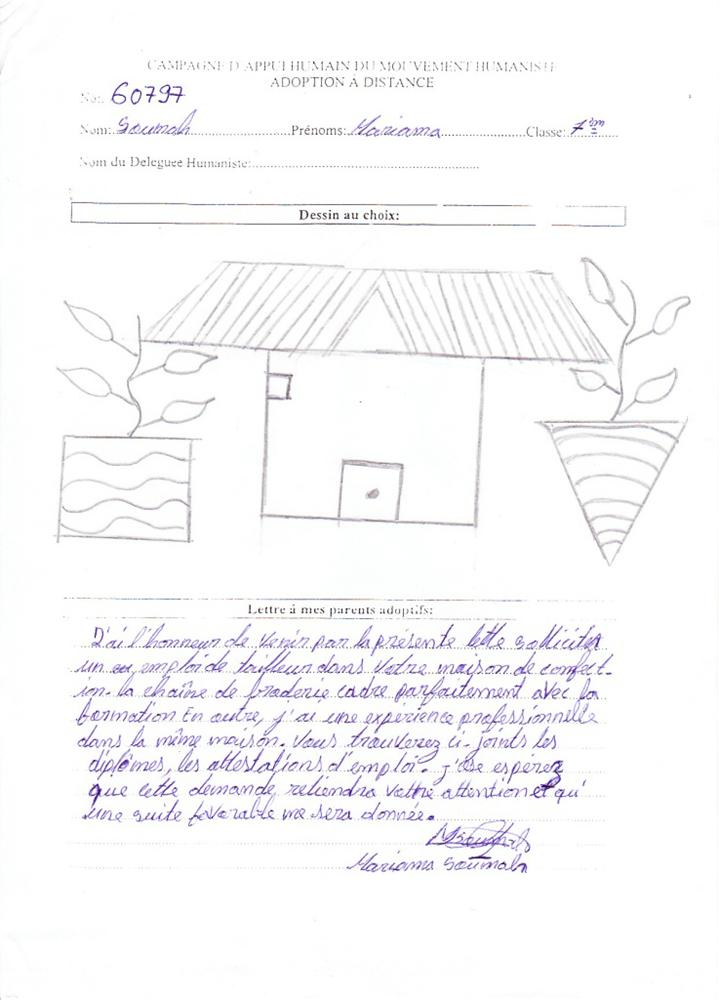 CAMPAGNE D'APPUI HUMAIN DU MOUVEMENT HUMANISTE
ADOPTION À DISTANCE
No: 60797
Nom: Soumah Prénoms: Mariama Classe: 7èm
Nom du Deleguee Humaniste:
Dessin au choix:
Lettre à mes parents adoptifs:
J'ai l'honneur de venir par la présente lettre solliciter
un emploi de tailleur dans votre maison de confect-
ion. la chaîne de broderie cadre parfaitement avec la
formation En outre, j'ai une experience professionnelle
dans la même maison. Vous trouverez ci-joints les
diplômes, les attestations d'emploi. j'ose esperez
que cette demande retiendra votre attention et qu'
une suite favorable me sera donnée.
Mariama Soumah